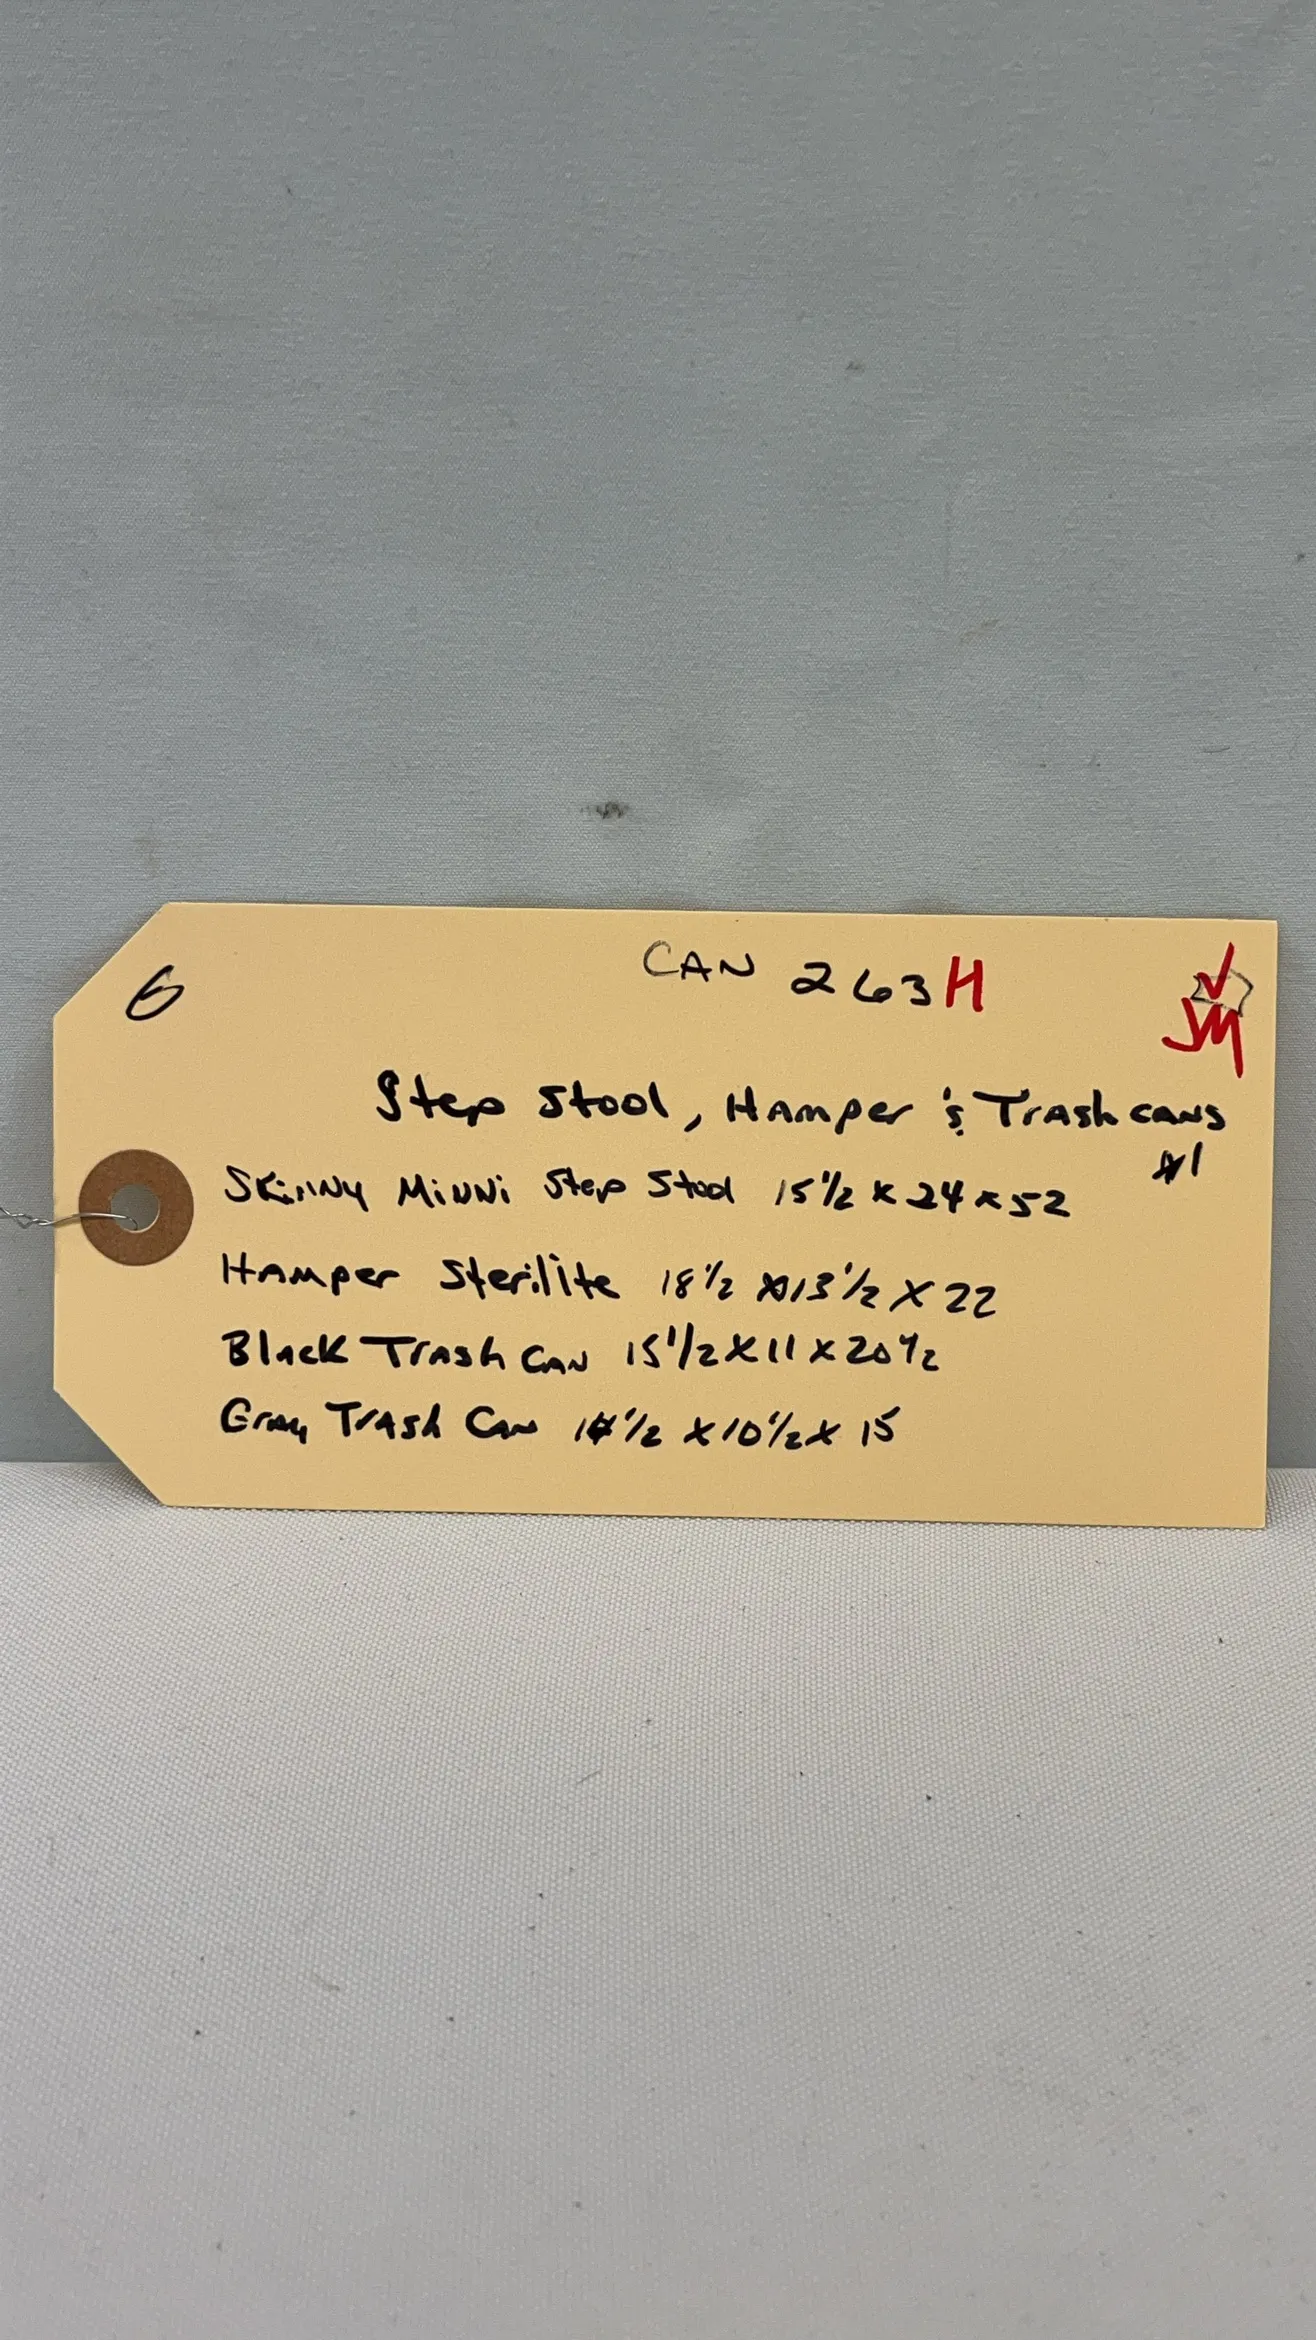 6
CAN 263H
JM
Step Stool, Hamper & Trash cans
#1
Skinny Minni Step Stool 15 1/2 x 24 x 52
Hamper Sterilite 18 1/2 x 13 1/2 x 22
Black Trash Can 15 1/2 x 11 x 20 1/2
Gray Trash Can 1 1/2 x 10 1/2 x 15